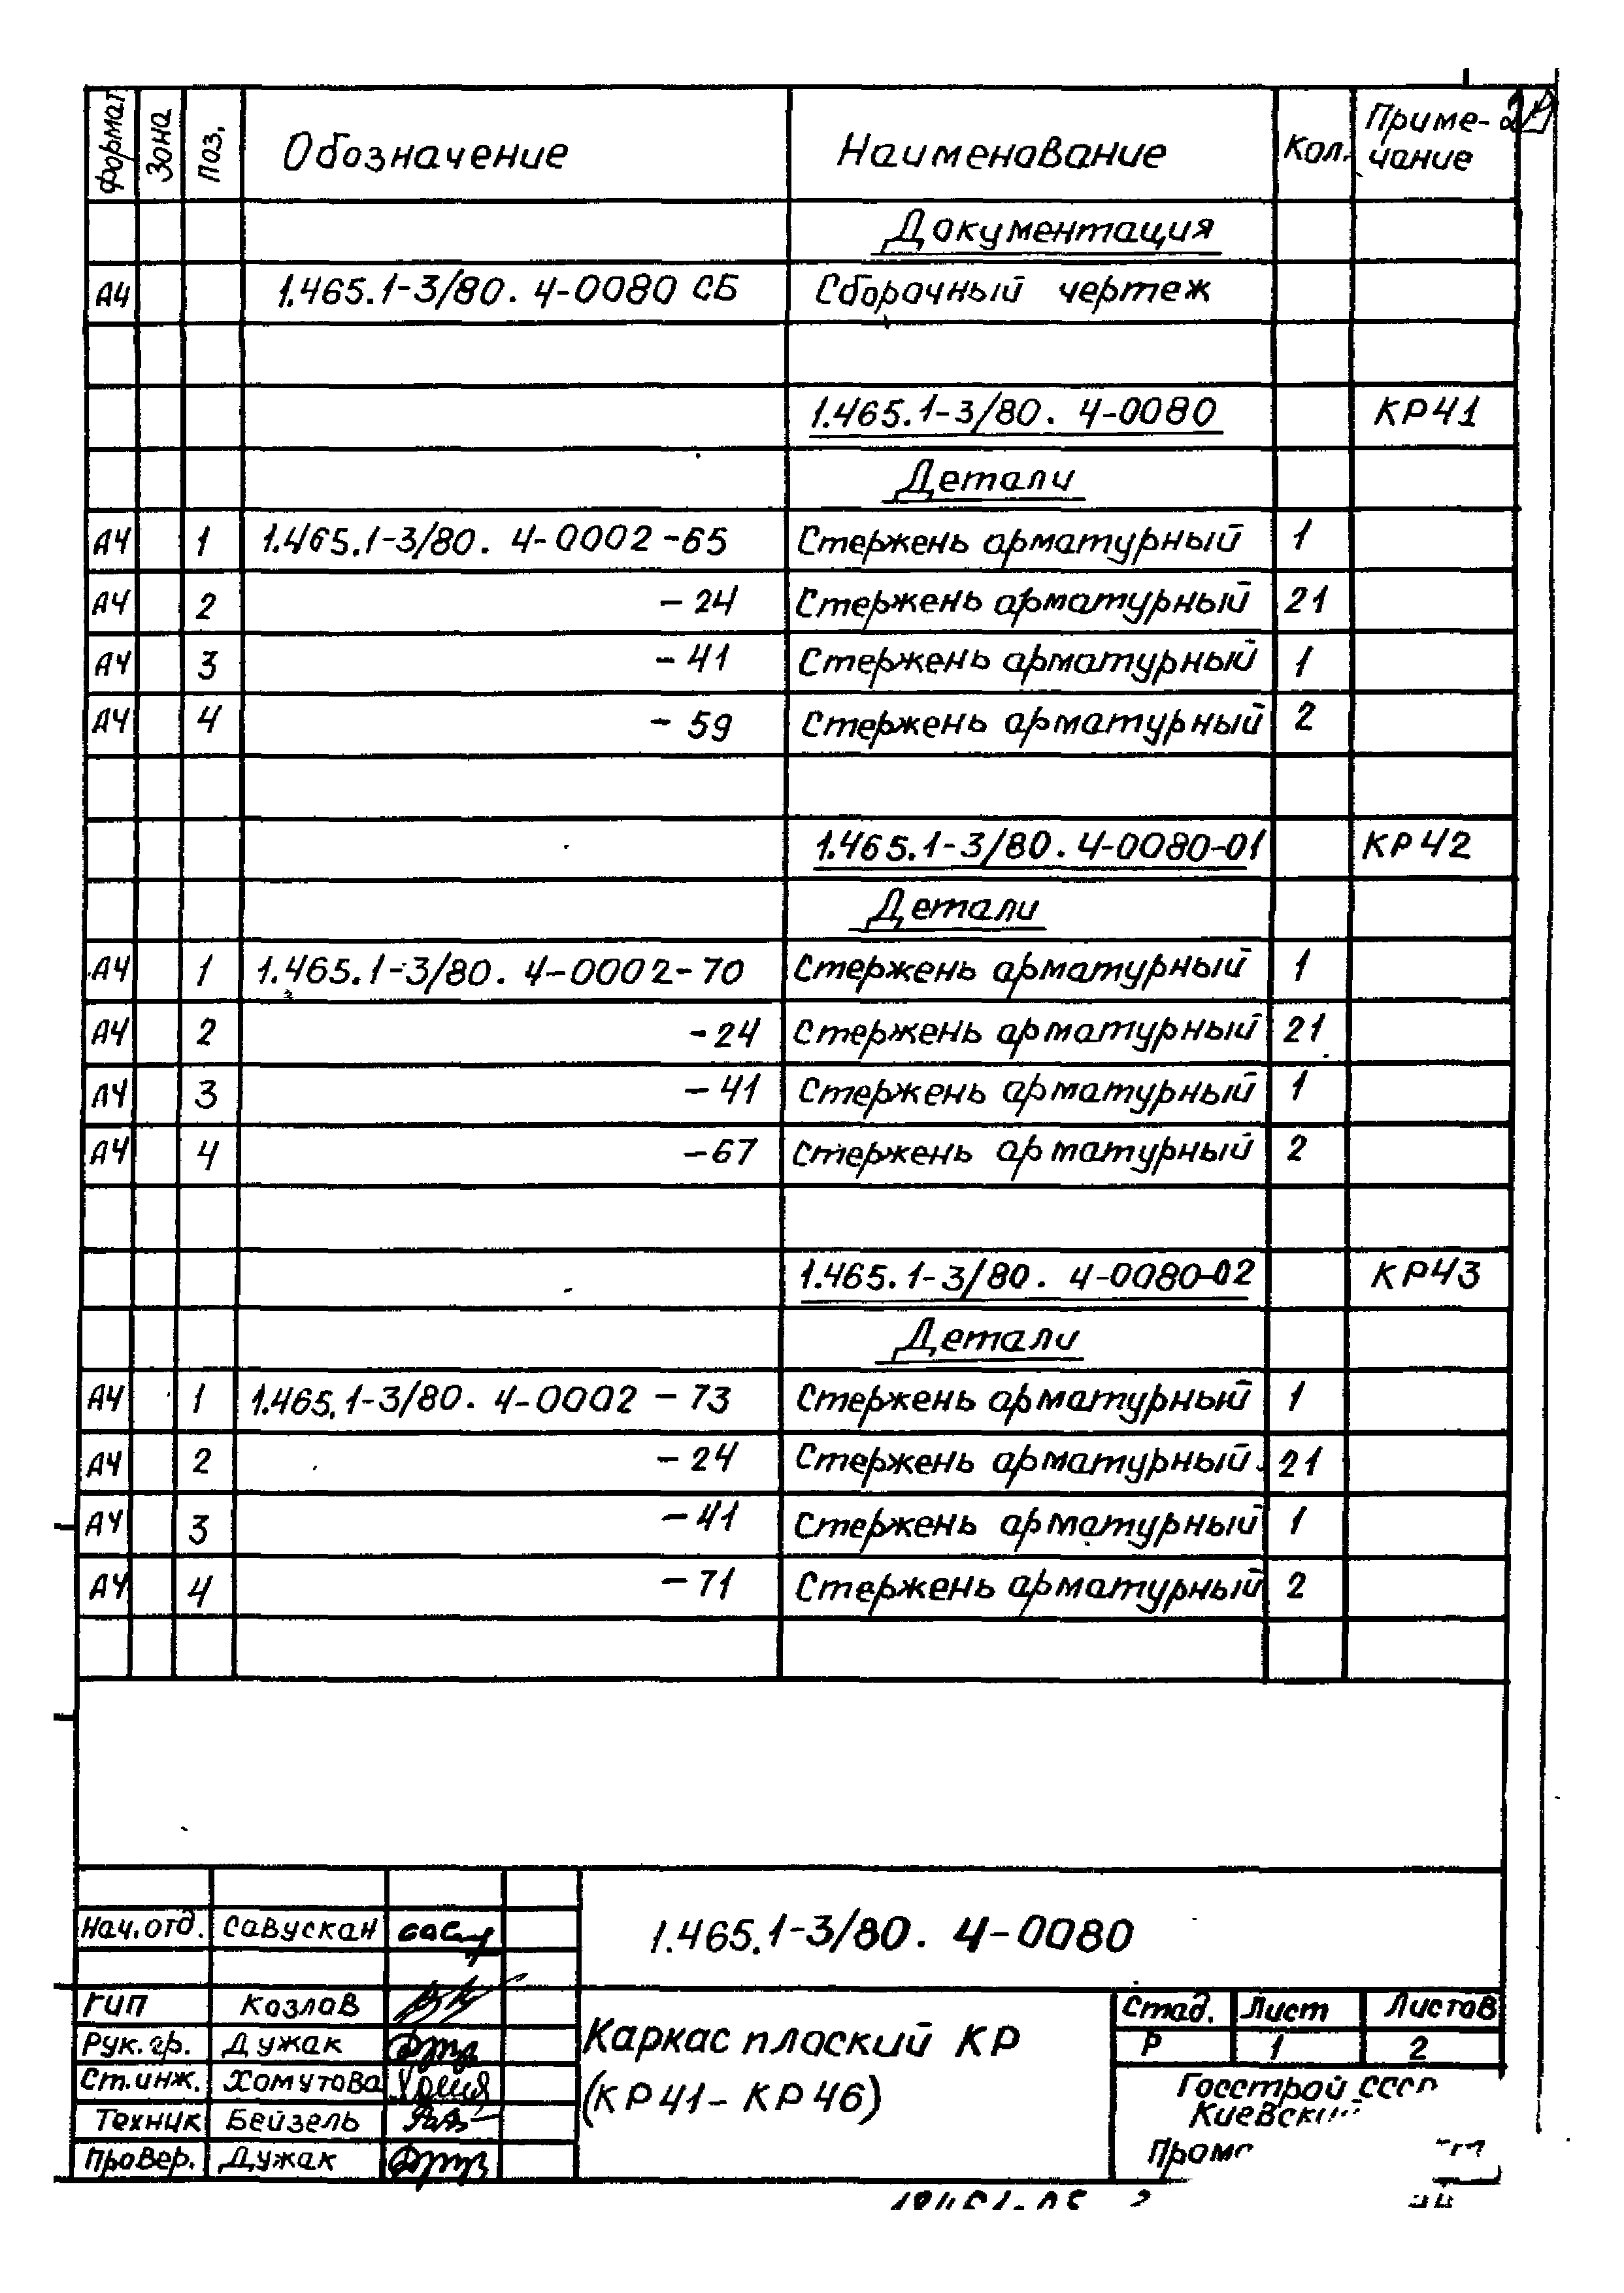 24
Формат Зона Поз. Обозначение Наименование Кол. Приме-
чание
Документация
А4 1.465.1-3/80. 4-0080 СБ Сборочный чертеж
1.465.1-3/80. 4-0080 КР41
Детали
А4 1 1.465.1-3/80. 4-0002-65 Стержень арматурный 1
А4 2 -24 Стержень арматурный 21
А4 3 -41 Стержень арматурный 1
А4 4 -59 Стержень арматурный 2
1.465.1-3/80. 4-0080-01 КР42
Детали
А4 1 1.465.1-3/80. 4-0002-70 Стержень арматурный 1
А4 2 -24 Стержень арматурный 21
А4 3 -41 Стержень арматурный 1
А4 4 -67 Стержень арматурный 2
1.465.1-3/80. 4-0080-02 КР43
Детали
А4 1 1.465.1-3/80. 4-0002-73 Стержень арматурный 1
А4 2 -24 Стержень арматурный 21
А4 3 -41 Стержень арматурный 1
А4 4 -71 Стержень арматурный 2
Нач.отд. Савускан
ГИП Козлов
Рук.гр. Дужак
Ст.инж. Хомутова
Техник Бейзель
Провер. Дужак
1.465.1-3/80. 4-0080
Каркас плоский КР
(КР41-КР46)
Стад. Лист Листов
Р 1 2
Госстрой СССР